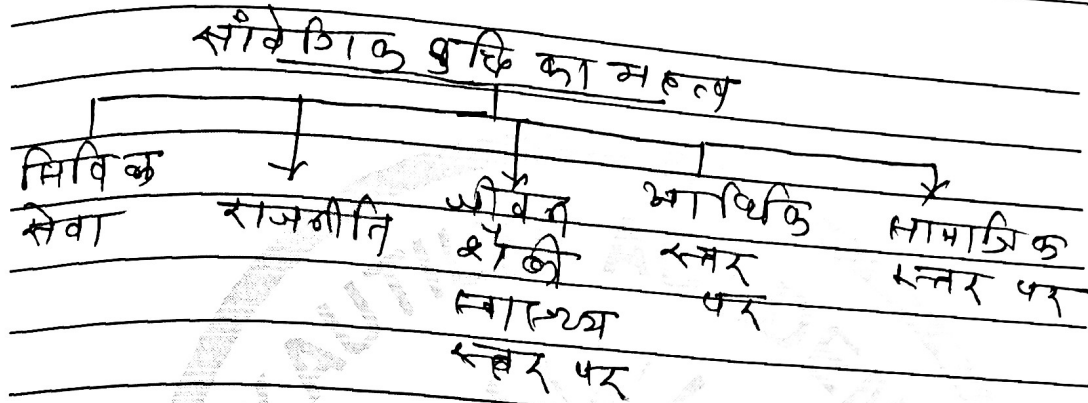 सांवेगिक बुद्धि का महत्व
सिविल सेवा
राजनीति
जीवन शैली स्वास्थ्य स्तर पर
आर्थिक स्तर पर
सामाजिक स्तर पर